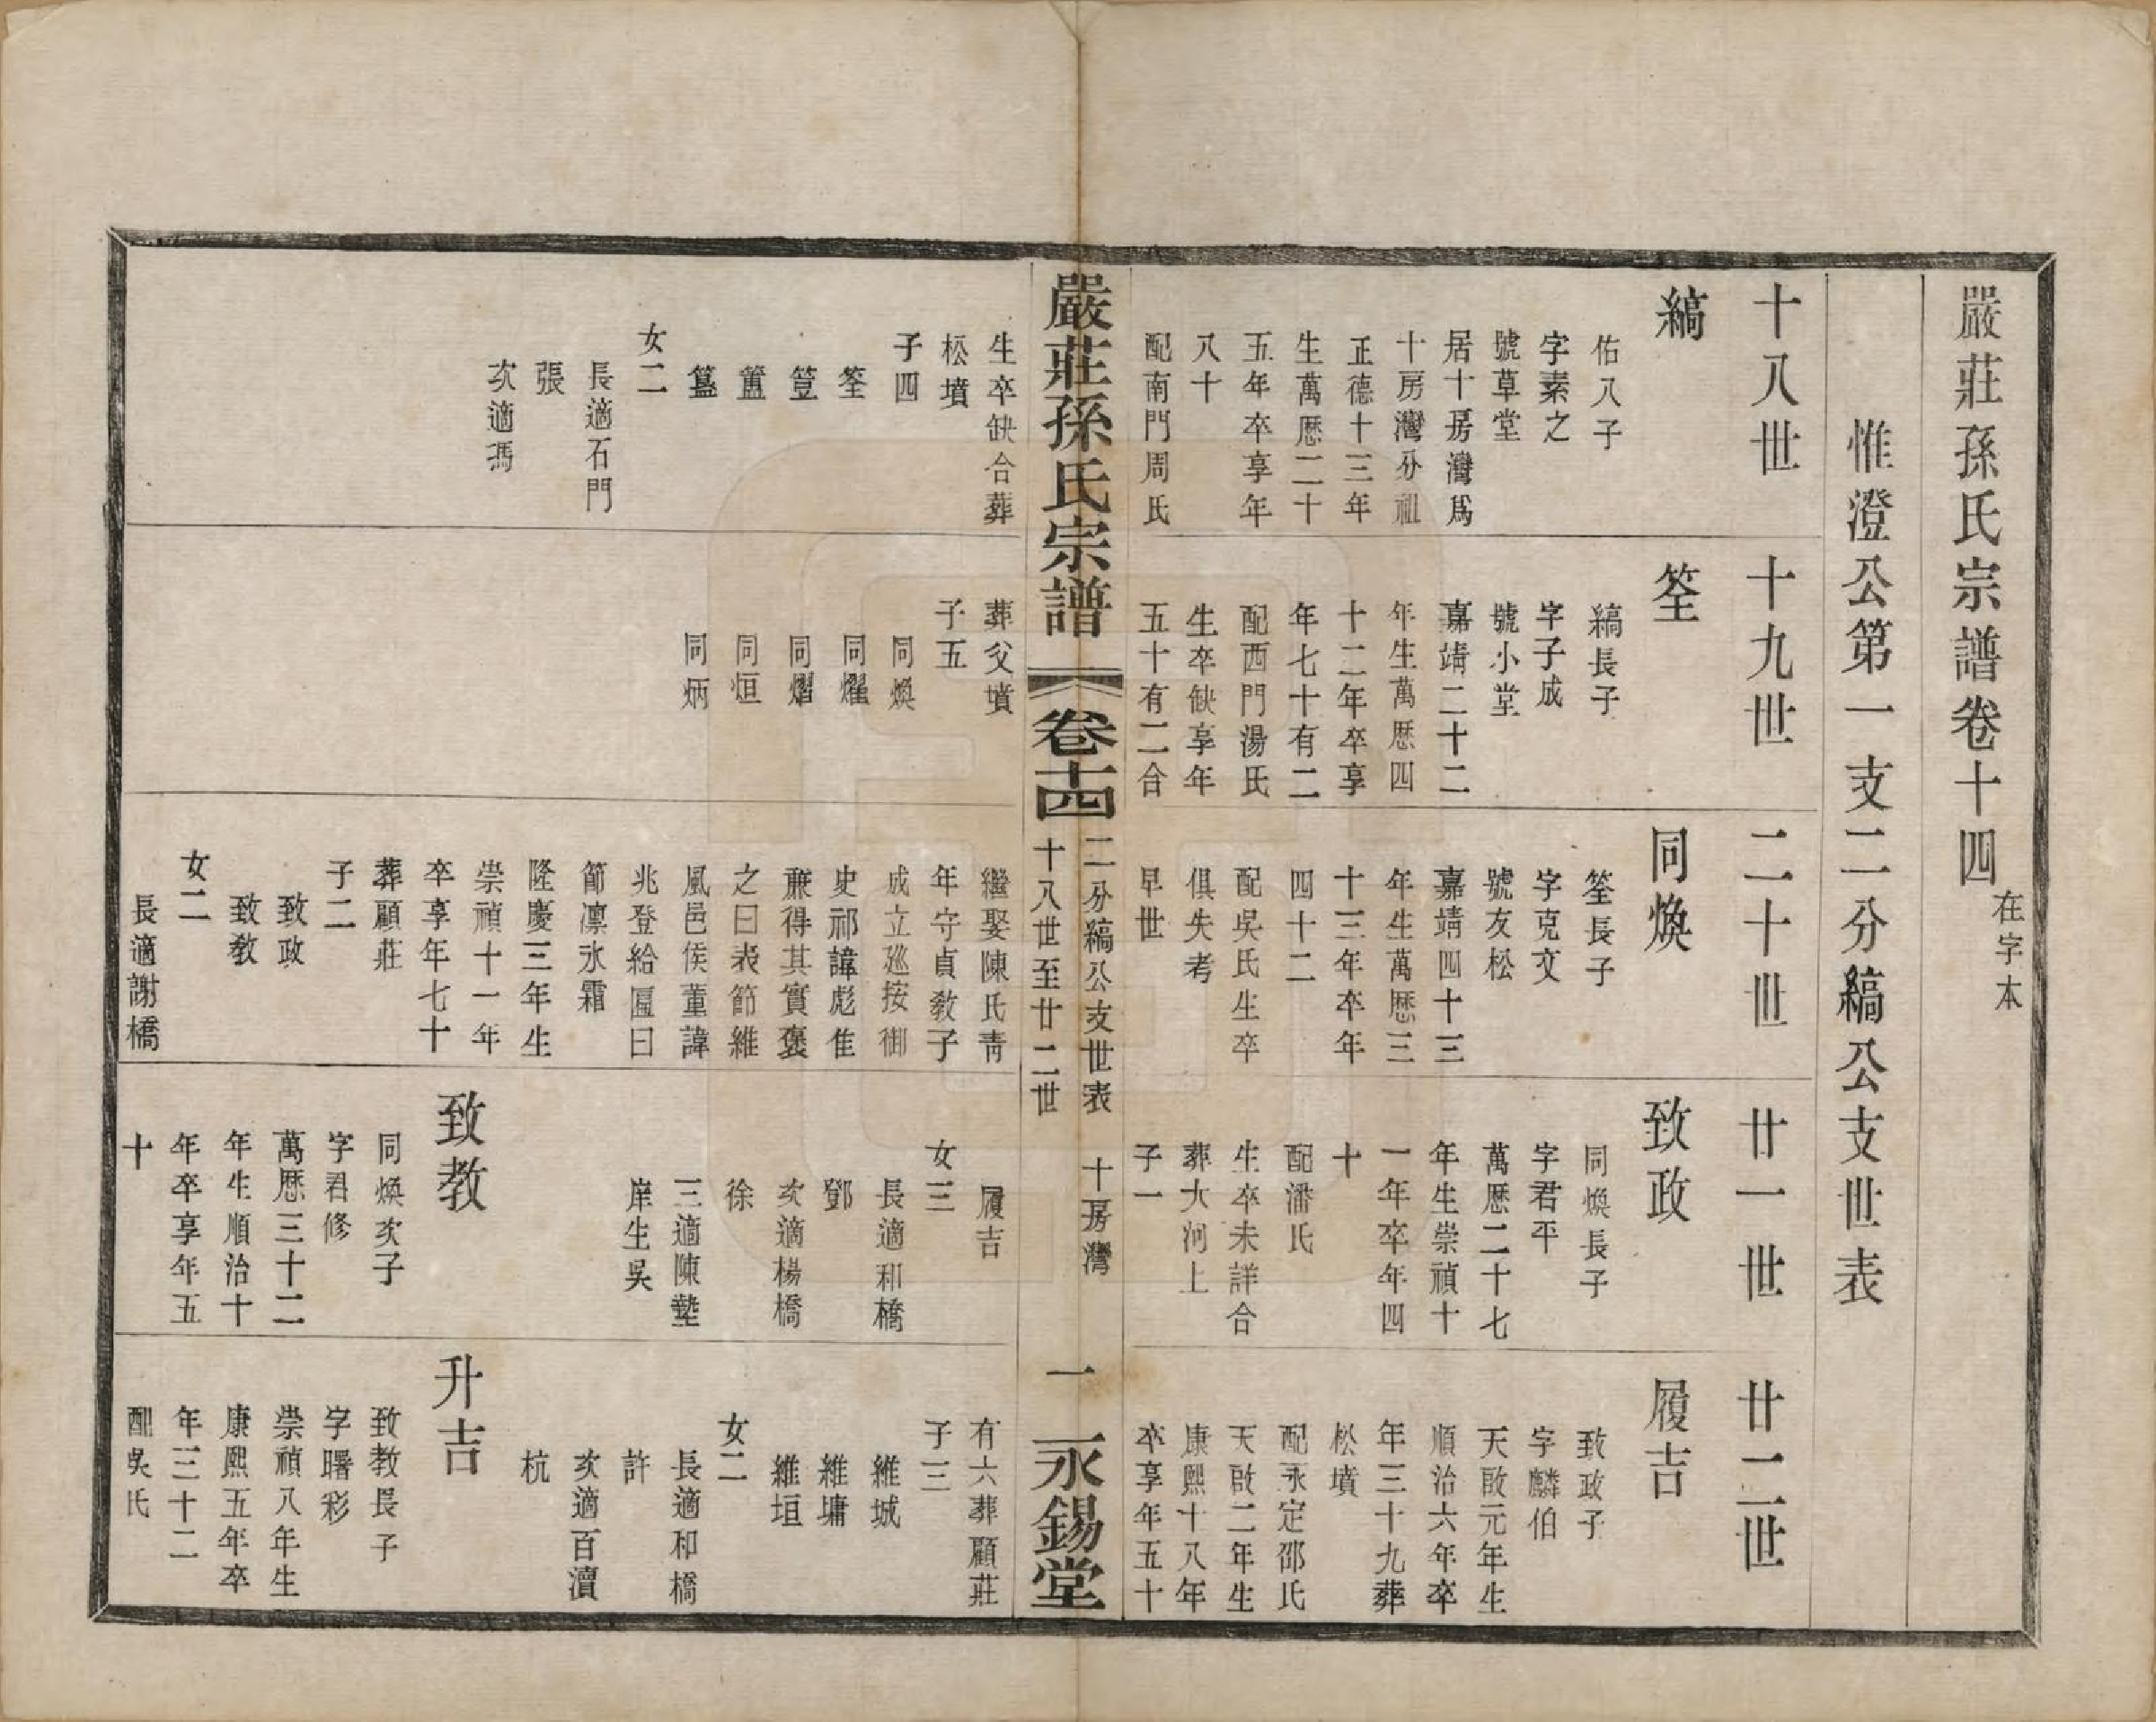 嚴莊孫氏宗譜卷十四
在字本
惟澄公第一支二分縞公支世表
十八世
縞
佑八子
字素之
號草堂
居十房灣爲
十房灣分祖
正德十三年
生萬厯二十
五年卒享年
八十
配南門周氏
生卒缺合葬
松墳
子四
筌
簦
簠
簋
女二
長適石門
張
次適馮
十九世
筌
縞長子
字子成
號小堂
嘉靖二十二
年生萬厯四
十二年卒享
年七十有二
配西門湯氏
生卒缺享年
五十有二合
葬父墳
子五
同煥
同燿
同熠
同烜
同炳
二十世
同煥
筌長子
字克文
號友松
嘉靖四十三
年生萬厯三
十三年卒年
四十二
配吳氏生卒
俱失考
早世
繼娶陳氏青
年守貞敎子
成立廵按御
史祁諱彪隹
亷得其實褒
之曰表節維
風邑侯董諱
兆登給匾曰
節凛氷霜
隆慶三年生
崇禎十一年
卒享年七十
葬顧莊
子二
致政
致敎
女二
長適謝橋
廿一世
致政
同煥長子
字君平
萬厯二十七
年生崇禎十
一年卒年四
十
配潘氏
生卒未詳合
葬大河上
子一
履吉
女三
長適和橋
鄧
次適楊橋
徐
三適陳墊
岸生吳
致教
同煥次子
字君修
萬厯三十二
年生順治十
年卒享年五
十
廿二世
履吉
致政子
字麟伯
天啟元年生
順治六年卒
年三十九葬
松墳
配永定邵氏
天啟二年生
康熙十八年
卒享年五十
有六葬顧莊
子三
維城
維墉
維垣
女二
長適和橋
許
次適百瀆
杭
升吉
致教長子
字曙彩
崇禎八年生
康熙五年卒
年三十二
配吳氏
嚴莊孫氏宗譜
卷十四
二分縞公支世表 十房灣
十八世至廿二世
一
永錫堂